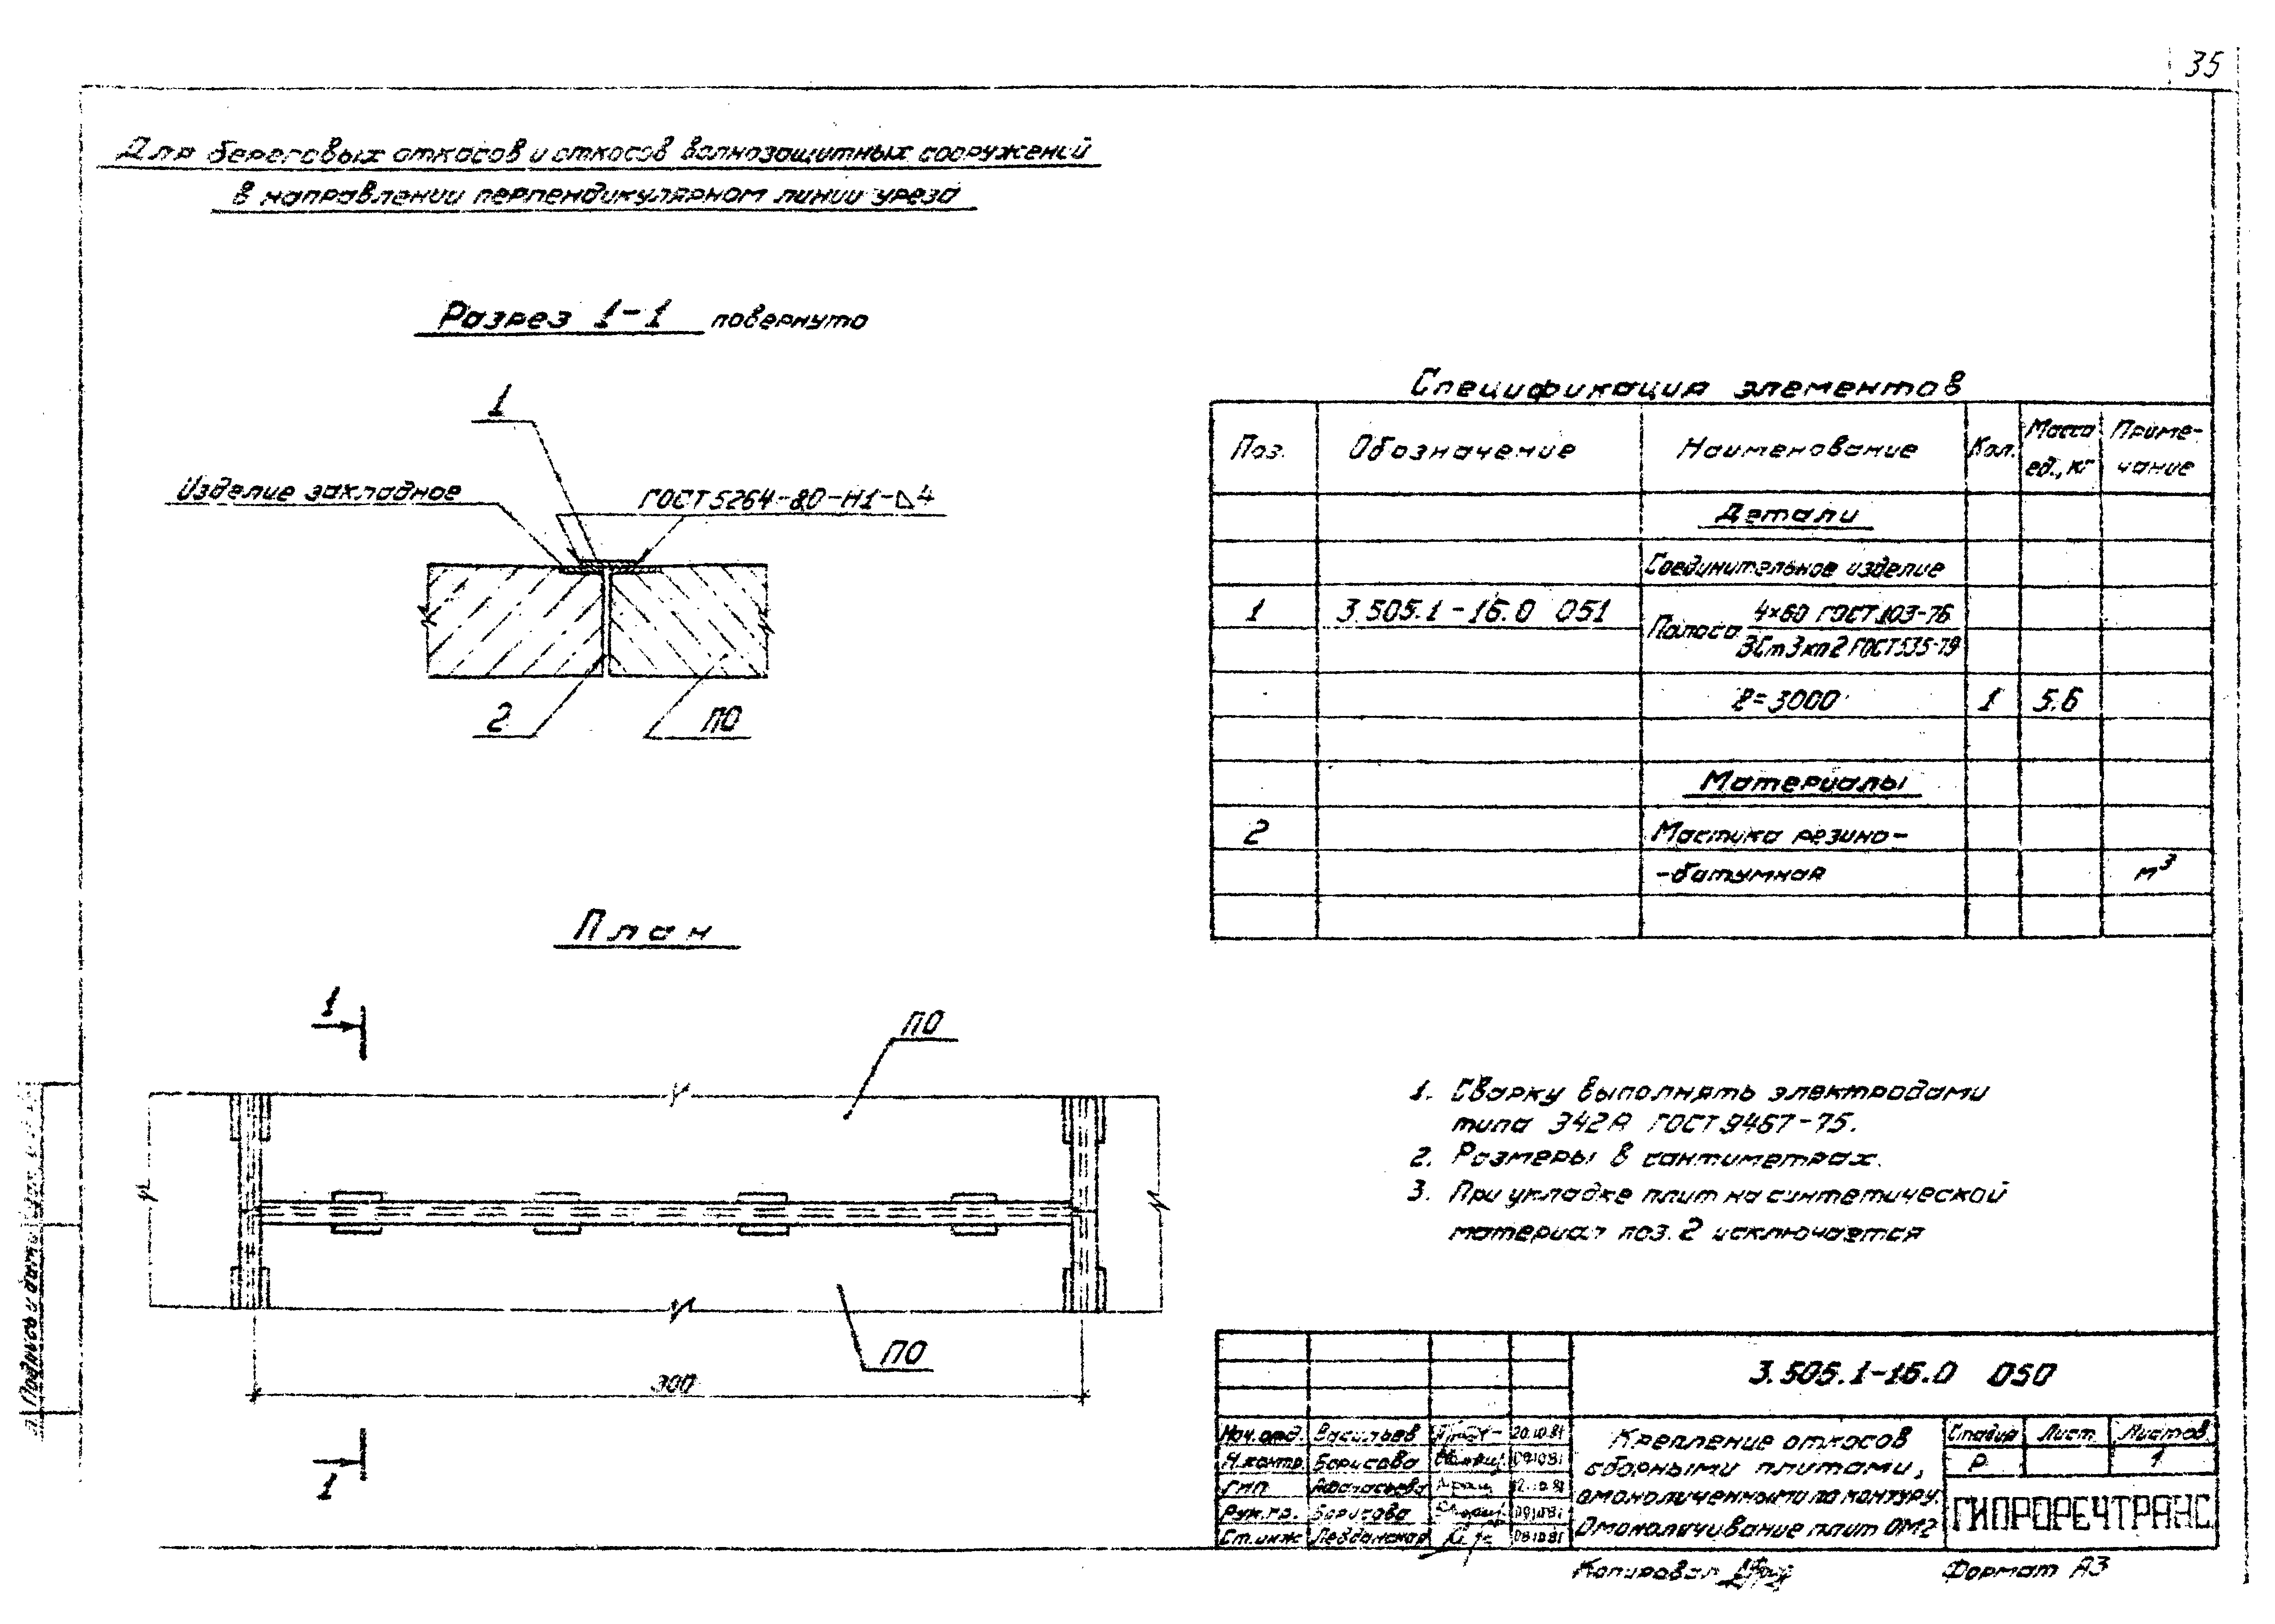 35
Для береговых откосов и откосов волнозащитных сооружений
в направлении перпендикулярном линии уреза
Разрез 1-1 повернуто
1
Изделие закладное
ГОСТ 5264-80-Н1-⊿4
2
ПО
План
1
ПО
ПО
300
1
Спецификация элементов
Поз.
Обозначение
Наименование
Кол.
Масса ед., кг
Приме-чание
Детали
Соединительное изделие
1
3.505.1-16.0 051
Полоса 4×60 ГОСТ 103-76
3Ст3кп2 ГОСТ 535-79
ℓ=3000
1
5.6
Материалы
2
Мастика резино-
-батумная
м³
1. Сварку выполнять электродами
типа Э42А ГОСТ 9467-75.
2. Размеры в сантиметрах.
3. При укладке плит на синтетический
материал поз. 2 исключается
3.505.1-16.0 050
Нач.отд. Васильев 20.10.81
Н.контр. Борисова 09.10.81
ГИП Афанасьева 12.10.81
Рук.гр. Борисова 09.10.81
Ст.инж 08.10.81
Крепление откосов
сборными плитами,
омоноличенными по контуру.
Омоноличивание плит ОМ2
Стадия Лист Листов
Р 1
ГИПРОРЕЧТРАНС
Копировал
Формат А3
Подпись и дата